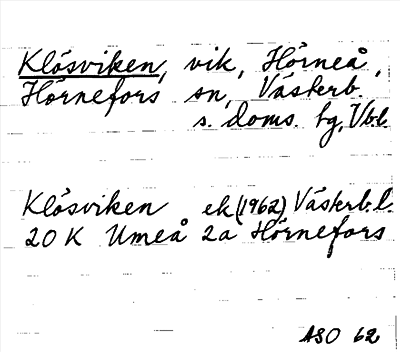 Klösviken, vik, Hörneå,
Hörnefors sn, Västerb.
s. doms. hg, Vb.l.
Klösviken ek (1962) Västerb.l.
20 K Umeå 2a Hörnefors
ASO 62